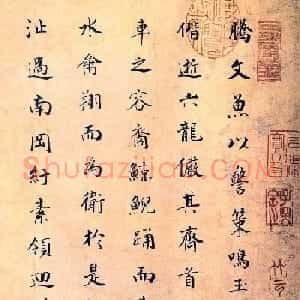 腾文鱼以警策鸣玉
偕逝六龍儼其齊首
車之容裔鯨鯢踊而
水禽翔而為衛於是
沚過南岡紆素領迴
Shufazilian.com